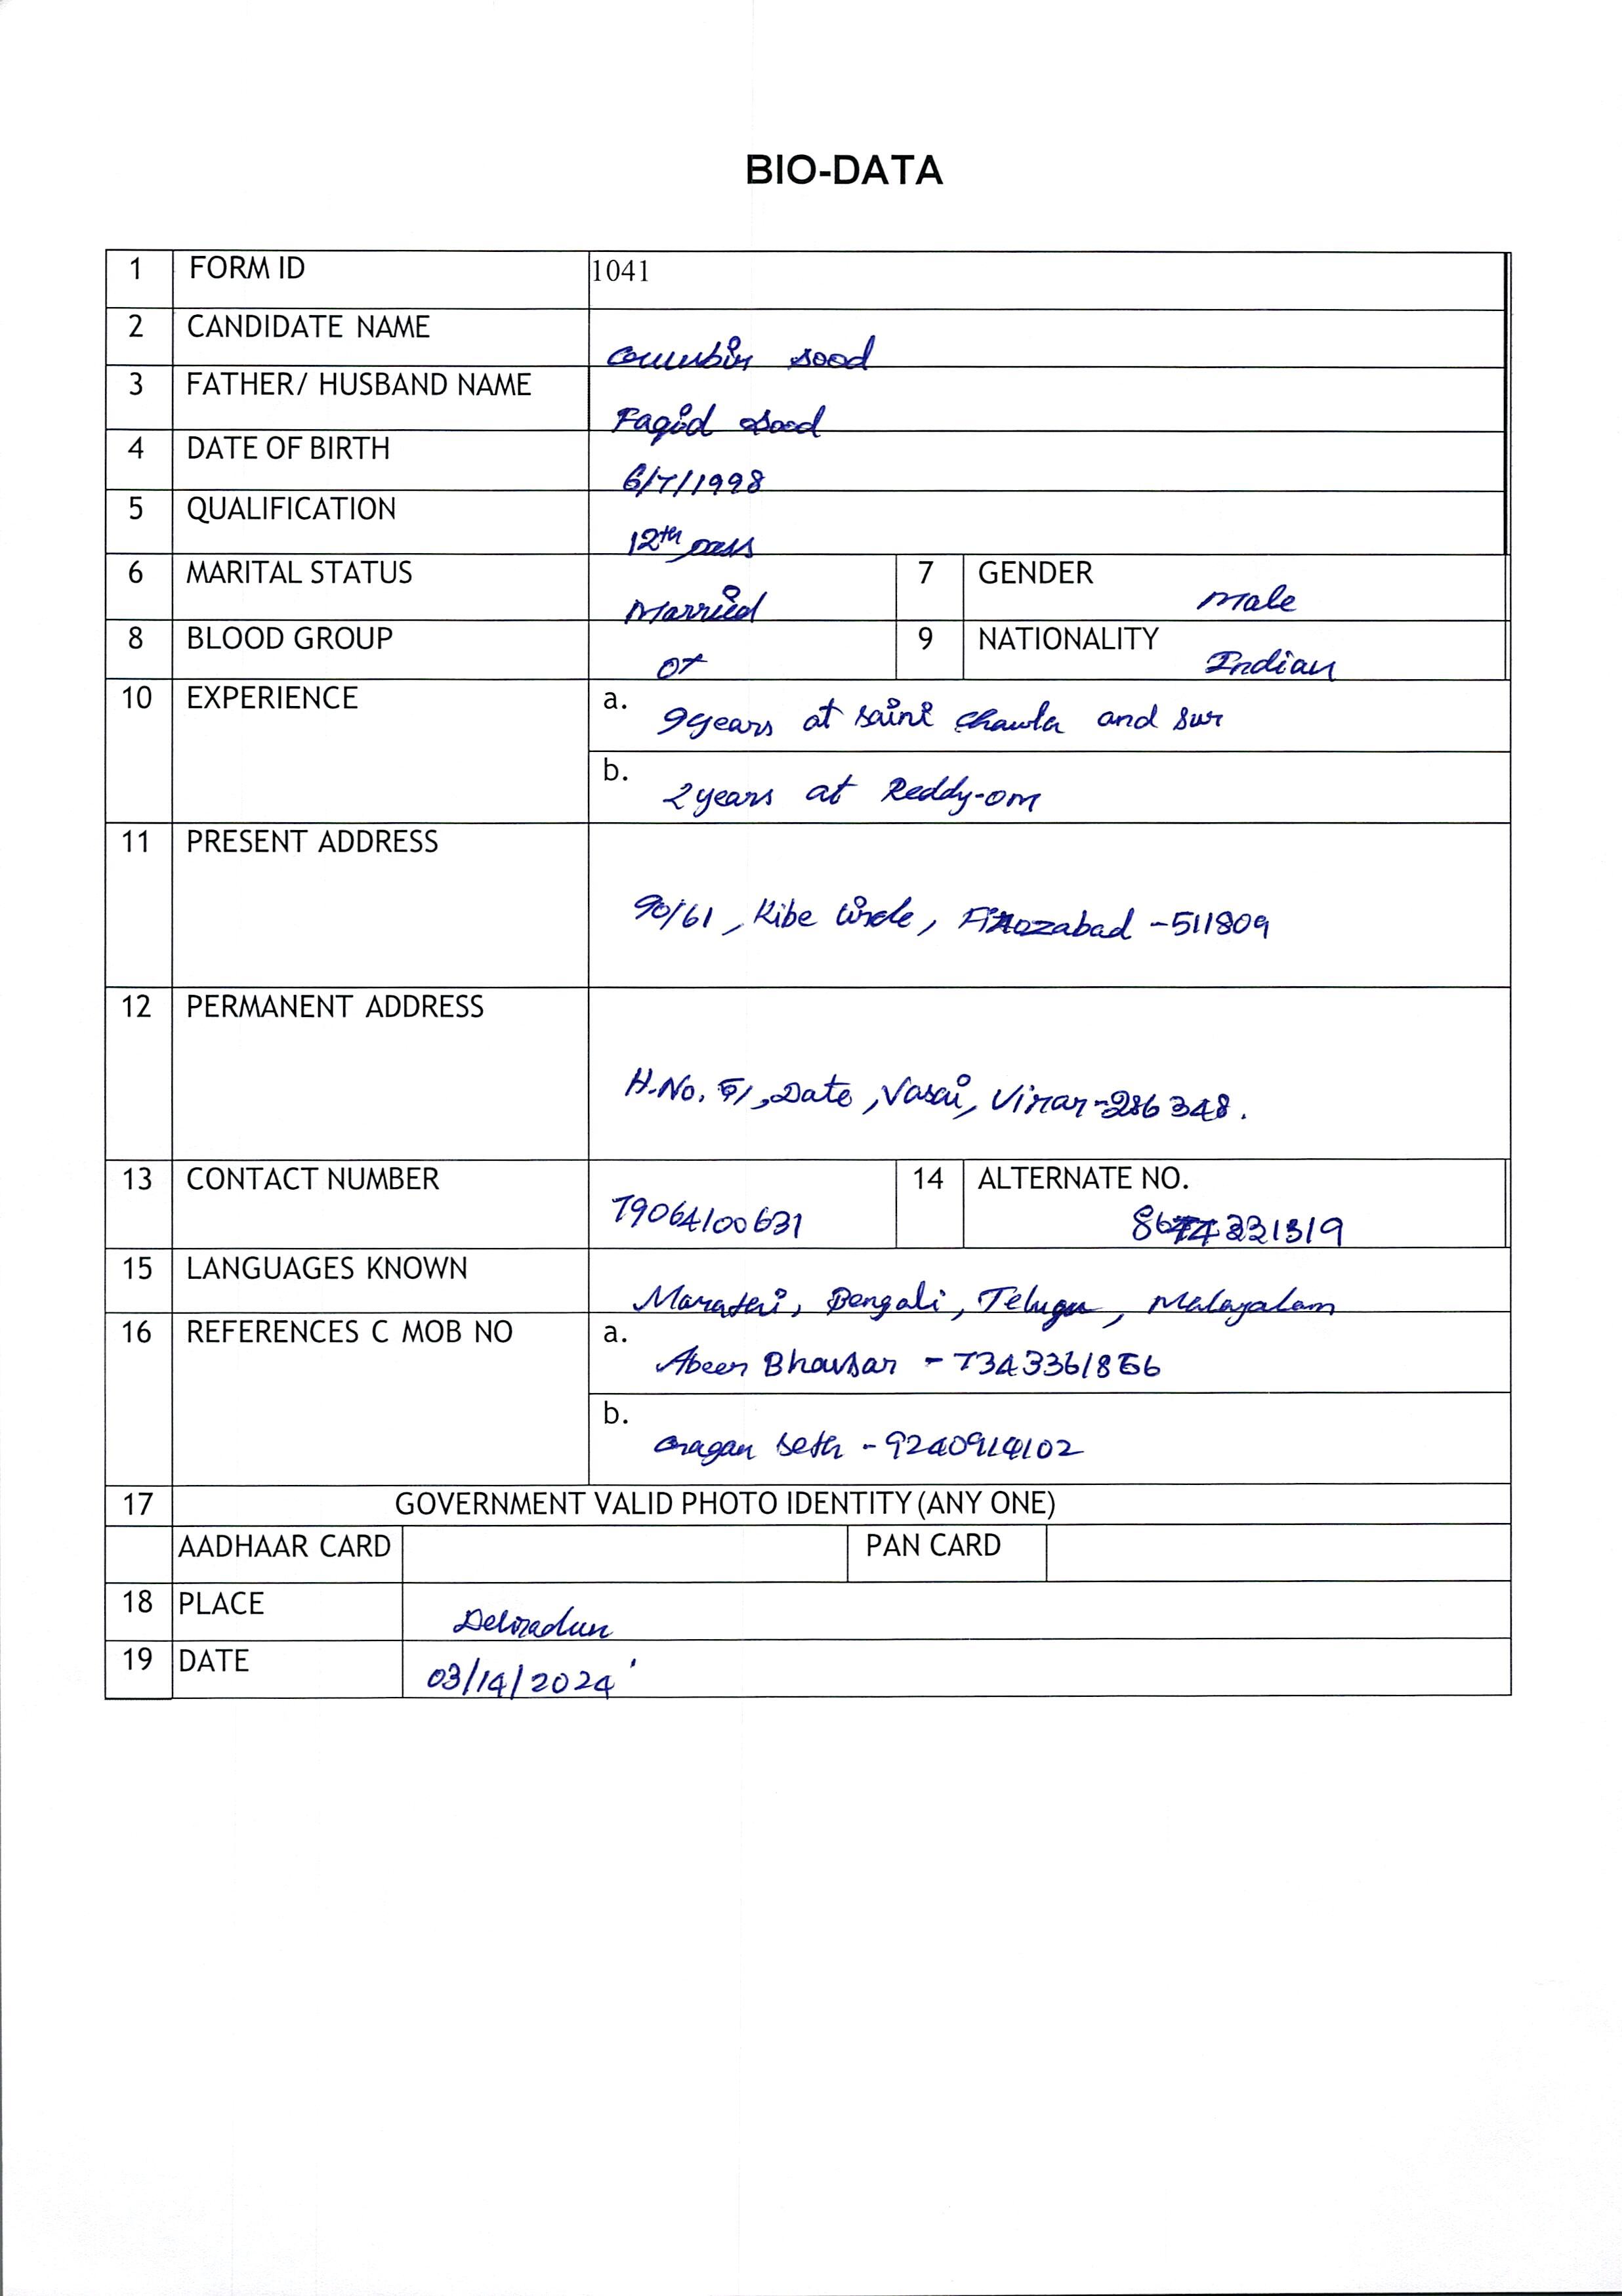 BIO-DATA
1 FORM ID 1041
2 CANDIDATE NAME sood
3 FATHER/ HUSBAND NAME Faqid sood
4 DATE OF BIRTH 6/7/1998
5 QUALIFICATION 12th pass
6 MARITAL STATUS Married 7 GENDER Male
8 BLOOD GROUP O+ 9 NATIONALITY Indian
10 EXPERIENCE a. 9years at saini chawla and sur
b. 2years at Reddy-om
11 PRESENT ADDRESS
90/61, Kibe circle, Firozabad -511809
12 PERMANENT ADDRESS
H.No. 51, Date, Vasai, Virar-286348.
13 CONTACT NUMBER 79064100631 14 ALTERNATE NO.
8674331319
15 LANGUAGES KNOWN Marathi, Bengali, Telugu, Malayalam
16 REFERENCES C MOB NO a. Abeer Bhavsar - 7343361856
b. seth - 9240914102
17 GOVERNMENT VALID PHOTO IDENTITY (ANY ONE)
AADHAAR CARD PAN CARD
18 PLACE Dehradun
19 DATE 03/14/2024